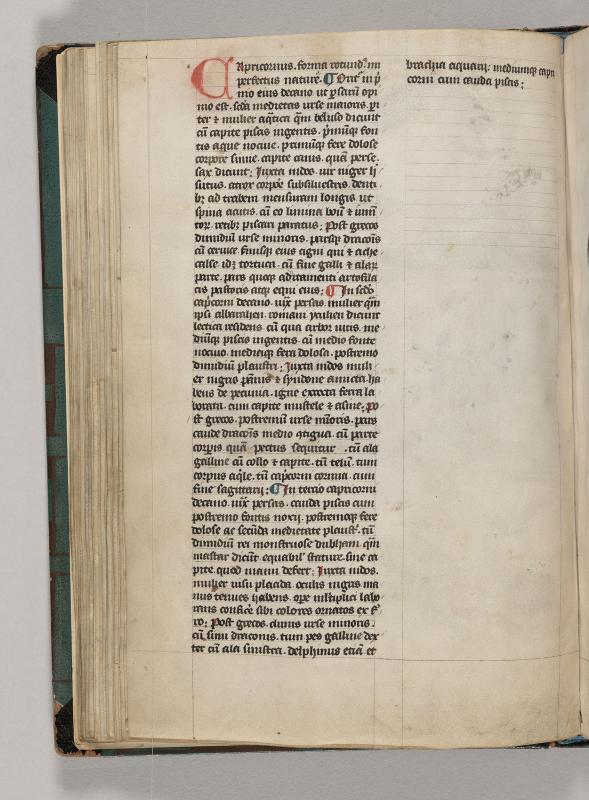 Capricornus. forma rotund᷒. im
perfectus nature. ¶ Orit᷑ in p̄
mo eius decano ut ꝑsaruȝ opi
nio est. scd̄a medietas urse maioris. p̄
ter ⁊ mulier aq̄tica q̄m beluso dicunt
cū capite piscis ingentis. p̄imūꝗ fon
tis aque nociue. primūꝗ fere dolose
corpore sinue. capite canis. quā perse.
sax dicunt; Iuxta indos. uir niger hi
sutus. atrox corpore subsiluestris. denti
bȝ ad trabem mensuram longis ut
spina acutis. cū eo lumina boū ⁊ iumē
tor̄. retibȝ piscari paratus; Post grecos
dimidiū urse minoris. parsꝗ draconis
cū ceruice. finisꝗ eius cigni qui ⁊ ache
calse idȝ tortuca. cū fine galli ⁊ alar̄
parte. pars quoꝗ additamenti artofila
cis pastoris atꝗ equi eius; ¶ In scd̄o
cap̄corni decano. iux̄ persas. mulier q̄m
ipsi albarahen. romani paulien dicunt
lectica residens. cū qua arbor uitis. me
diūꝗ piscis ingentis. cū medio fonte
nociuo. medieꝗ fera dolosa. postremo
dimidiū plaustri; Iuxta indos muli
er nigris pānis ⁊ syndone amicta. ha
bens de pecunia. igne exrocta ferra la
borata. cum capite mustele ⁊ asine; Po
st grecos. postremū urse mīoris. pars
caude draconis medio ꝯtigua. cū parte
corꝑis quā pectus sequitur. tū ala
galline cū collo ⁊ capite. tū telū. tum
corpus aq̄le. tū cap̄corni cornua. cum
fine sagittarij; ¶ In tercio capricorni
decano. iux̄ persas. cauda piscis cum
postremo fontis noxij. postremoꝗ fere
dolose ac secūda medietate plaust᷑. tū
dimidiū rei monstruose dubham. q̄m
mastar dicūt equabil᷑ stature. sine ca
pite. quod manu defert; Iuxta indos.
mulier uisu placida. oculis nigris ma
nus tenues habens. ope m̄ltiplici labo
rans conficē sibi colores ornatos ex f̄
ro; Post grecos. clunis urse minoris.
cū sinu draconis. tum pes galline dex
ter cū ala sinistra. delphinus etiā et
brachia aquarij. mediumꝗ capri
corni cum cauda piscis;